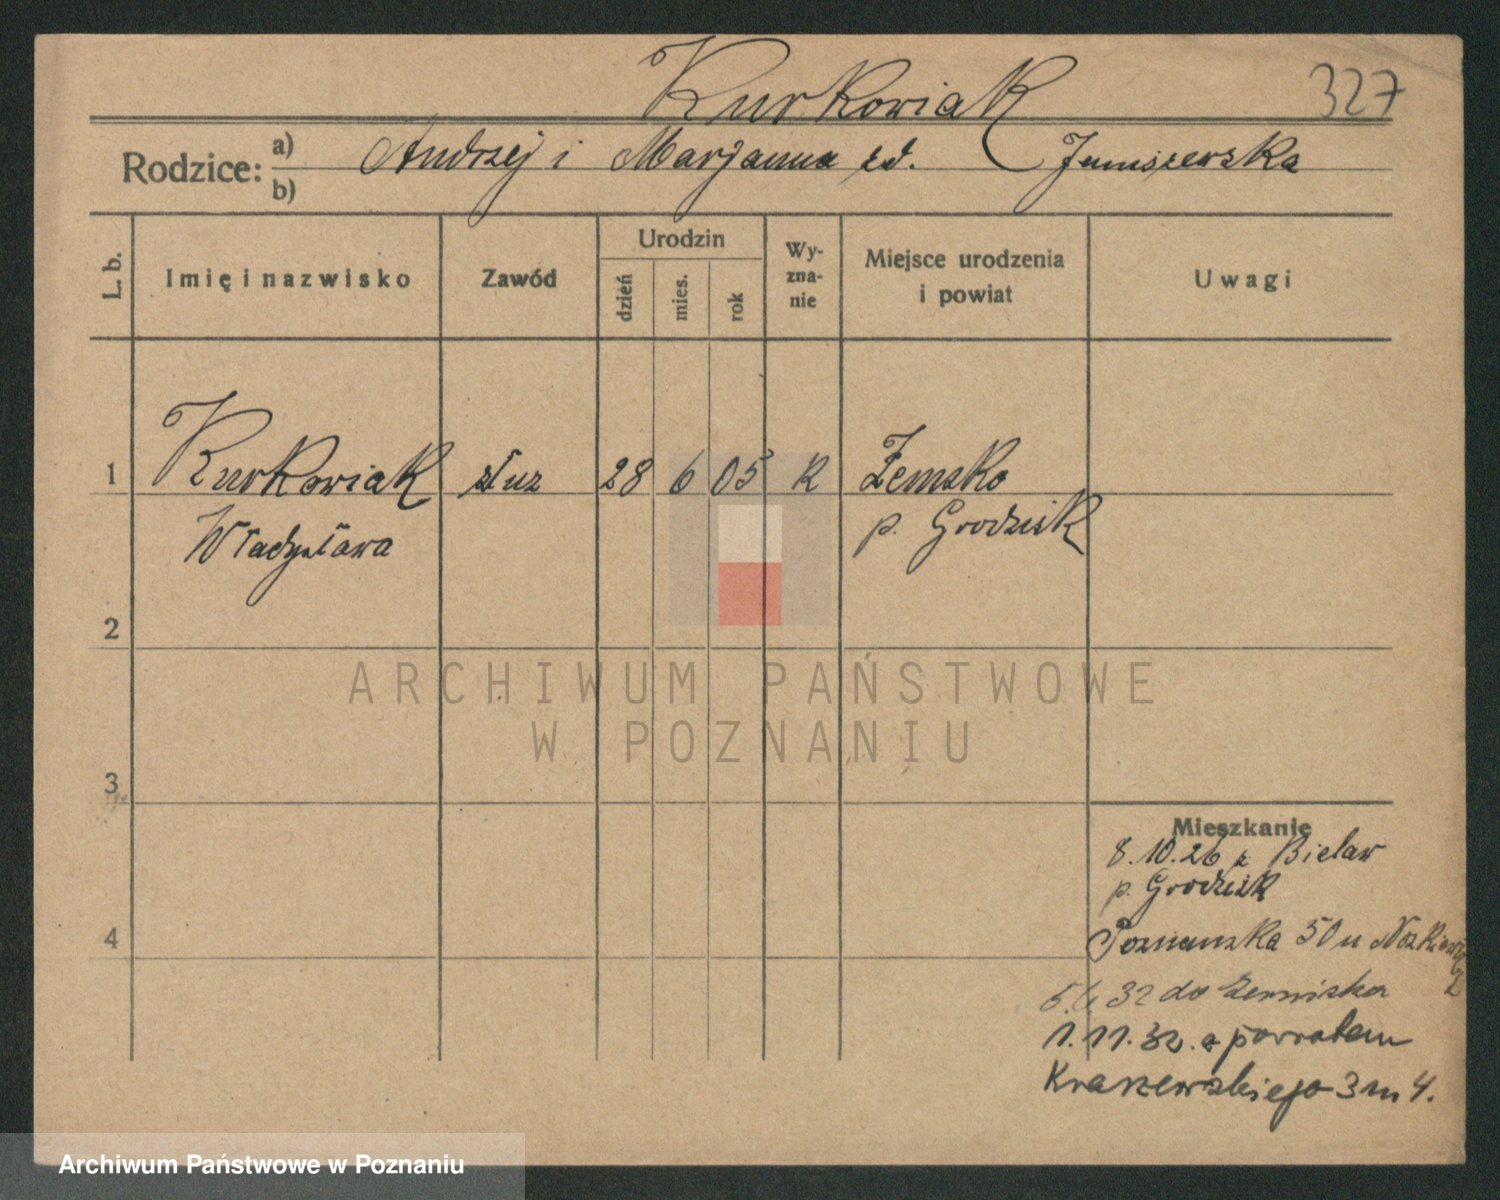 Kurkowiak 327
Rodzice: a) Andrzej i Marjanna zd.
b)
L. b. Imię i nazwisko Zawód Urodzin dzień mies. rok Wyznanie Miejsce urodzenia i powiat Uwagi
1 Kurkowiak służ 28 6 05 K Zemsko
Władysława p. Grodzisk
2
ARCHIWUM PAŃSTWOWE
W POZNANIU
3
Mieszkanie
8.10.26 z Bielaw
p. Grodzisk
4
Poznańska 50 u
32 do
1.11.32. z powrotem
Kraszewskiego 3 m 4.
Archiwum Państwowe w Poznaniu